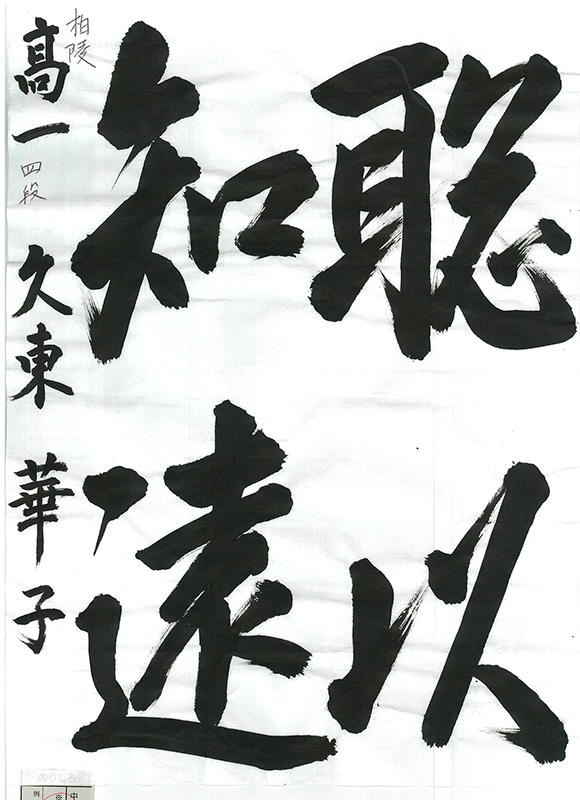 聡以
知遠
柏陵
高一 四段 久東 華子
のりしろ
例
中